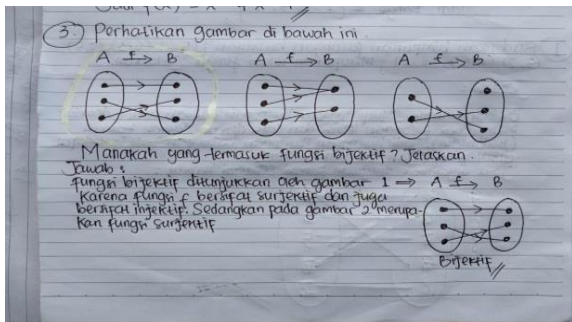 3. Perhatikan gambar di bawah ini
A f B A f B A f B
Manakah yang termasuk fungsi bijektif? Jelaskan.
Jawab :
fungsi bijektif ditunjukkan oleh gambar 1 ⇒ A f B
Karena fungsi f bersifat surjektif dan juga
bersifat injektif. Sedangkan pada gambar 2 merupa-
kan fungsi surjektif
Bijektif //